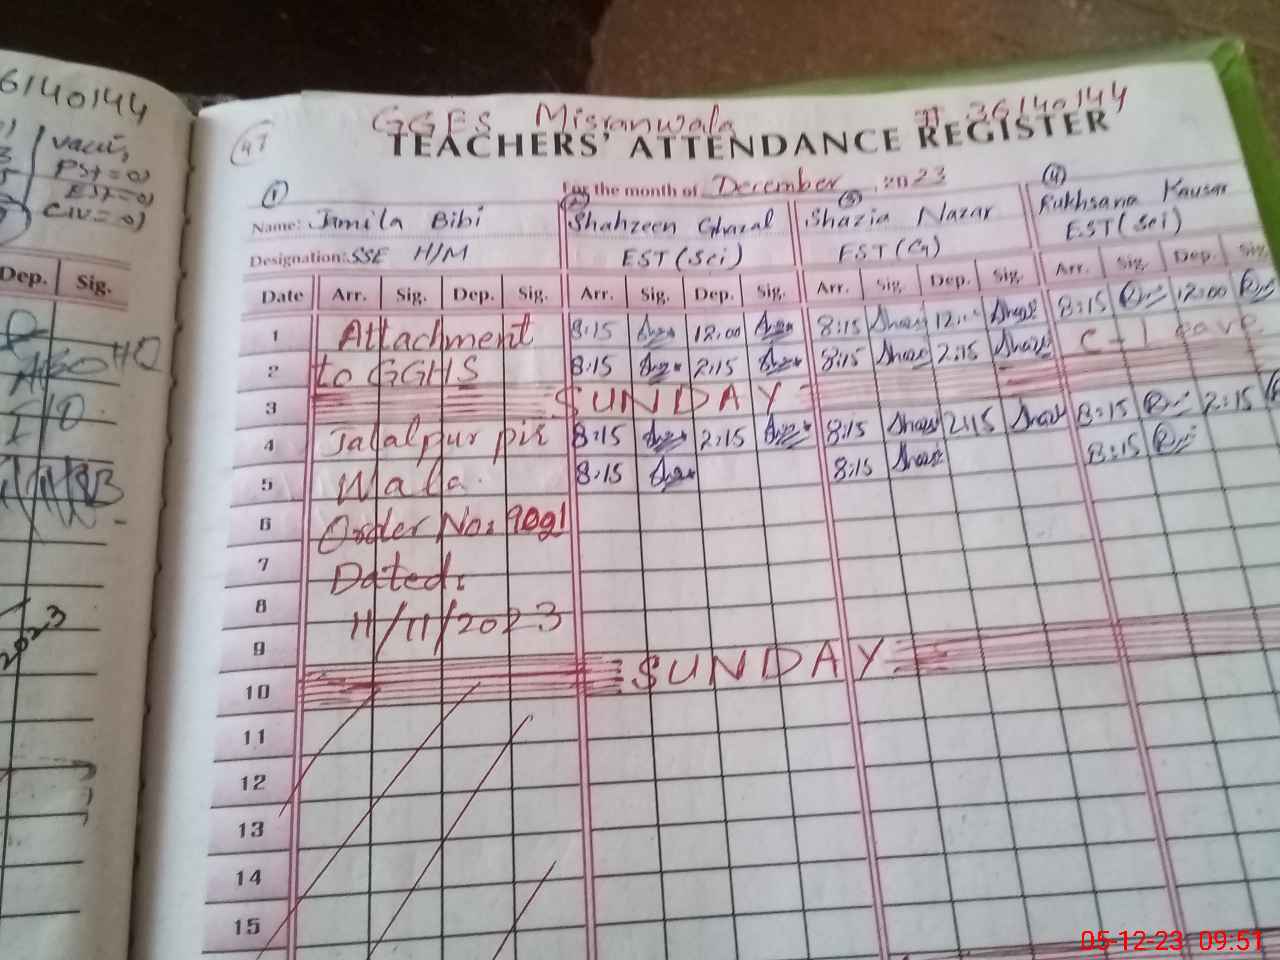 36140144
vacu;
PST=01
EST=01
CIV=01
Dep. Sig.
2023
47
GGES Misranwala # 36140144
TEACHERS' ATTENDANCE REGISTER
For the month of December, 2023
① ② ③ ④
Name: Jamila Bibi Shahzeen Ghazal Shazia Nazar Rukhsana Kausar
Designation: SSE H/M EST (Sci) EST (G) EST (Sci)
Date Arr. Sig. Dep. Sig. Arr. Sig. Dep. Sig. Arr. Sig. Dep. Sig. Arr. Sig. Dep. Sig.
1 Attachment 8:15 12:00 8:15 12:00 8:15 12:00
2 to GGHS 8:15 2:15 8:15 2:15 C-Leave
3 SUNDAY
4 Jalalpur pir 8:15 2:15 8:15 2:15 8:15 2:15
5 Wala. 8:15 8:15 8:15
6 Order No: 9091
7 Dated:
8 11/11/2023
9
10 SUNDAY
11
12
13
14
15
05-12-23 09:51